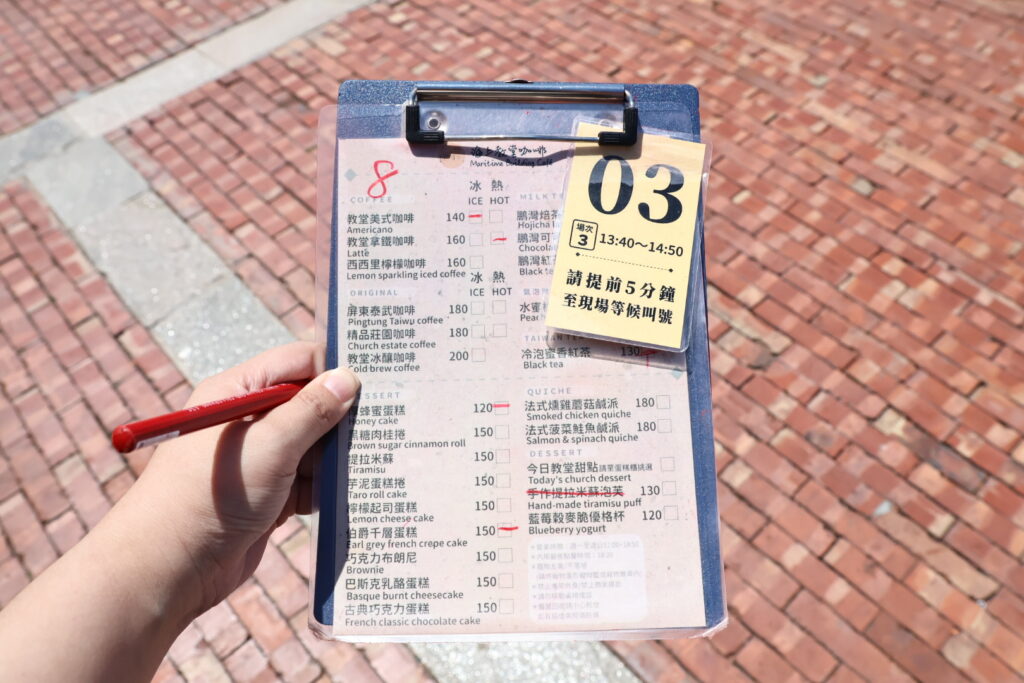 海上教堂咖啡
Maritime Building Café
8
冰 熱
COFFEE ICE HOT
教堂美式咖啡 140
Americano
教堂拿鐵咖啡 160
Latte
西西里檸檬咖啡 160
Lemon sparkling iced coffee
冰 熱
ORIGINAL ICE HOT
屏東泰武咖啡 180
Pingtung Taiwu coffee
精品莊園咖啡 180
Church estate coffee
教堂冰釀咖啡 200
Cold brew coffee
MILKT
鵬灣焙茶
Hojicha
鵬灣可
Chocola
鵬灣紅
Black te
水蜜
Peach
TAIWAN TEA
冷泡蜜香紅茶 130
Black tea
03
場次
3
13:40~14:50
請提前5分鐘
至現場等候叫號
DESSERT
蜂蜜蛋糕 120
Honey cake
黑糖肉桂捲 150
Brown sugar cinnamon roll
提拉米蘇 150
Tiramisu
芋泥蛋糕捲 150
Taro roll cake
檸檬起司蛋糕 150
Lemon cheese cake
伯爵千層蛋糕 150
Earl grey french crepe cake
巧克力布朗尼 150
Brownie
巴斯克乳酪蛋糕 150
Basque burnt cheesecake
古典巧克力蛋糕 150
French classic chocolate cake
QUICHE
法式燻雞蘑菇鹹派 180
Smoked chicken quiche
法式菠菜鮭魚鹹派 180
Salmon & spinach quiche
DESSERT
今日教堂甜點 請至蛋糕櫃挑選
Today's church dessert
手作提拉米蘇泡芙 130
Hand-made tiramisu puff
藍莓穀麥脆優格杯 120
Blueberry yogurt